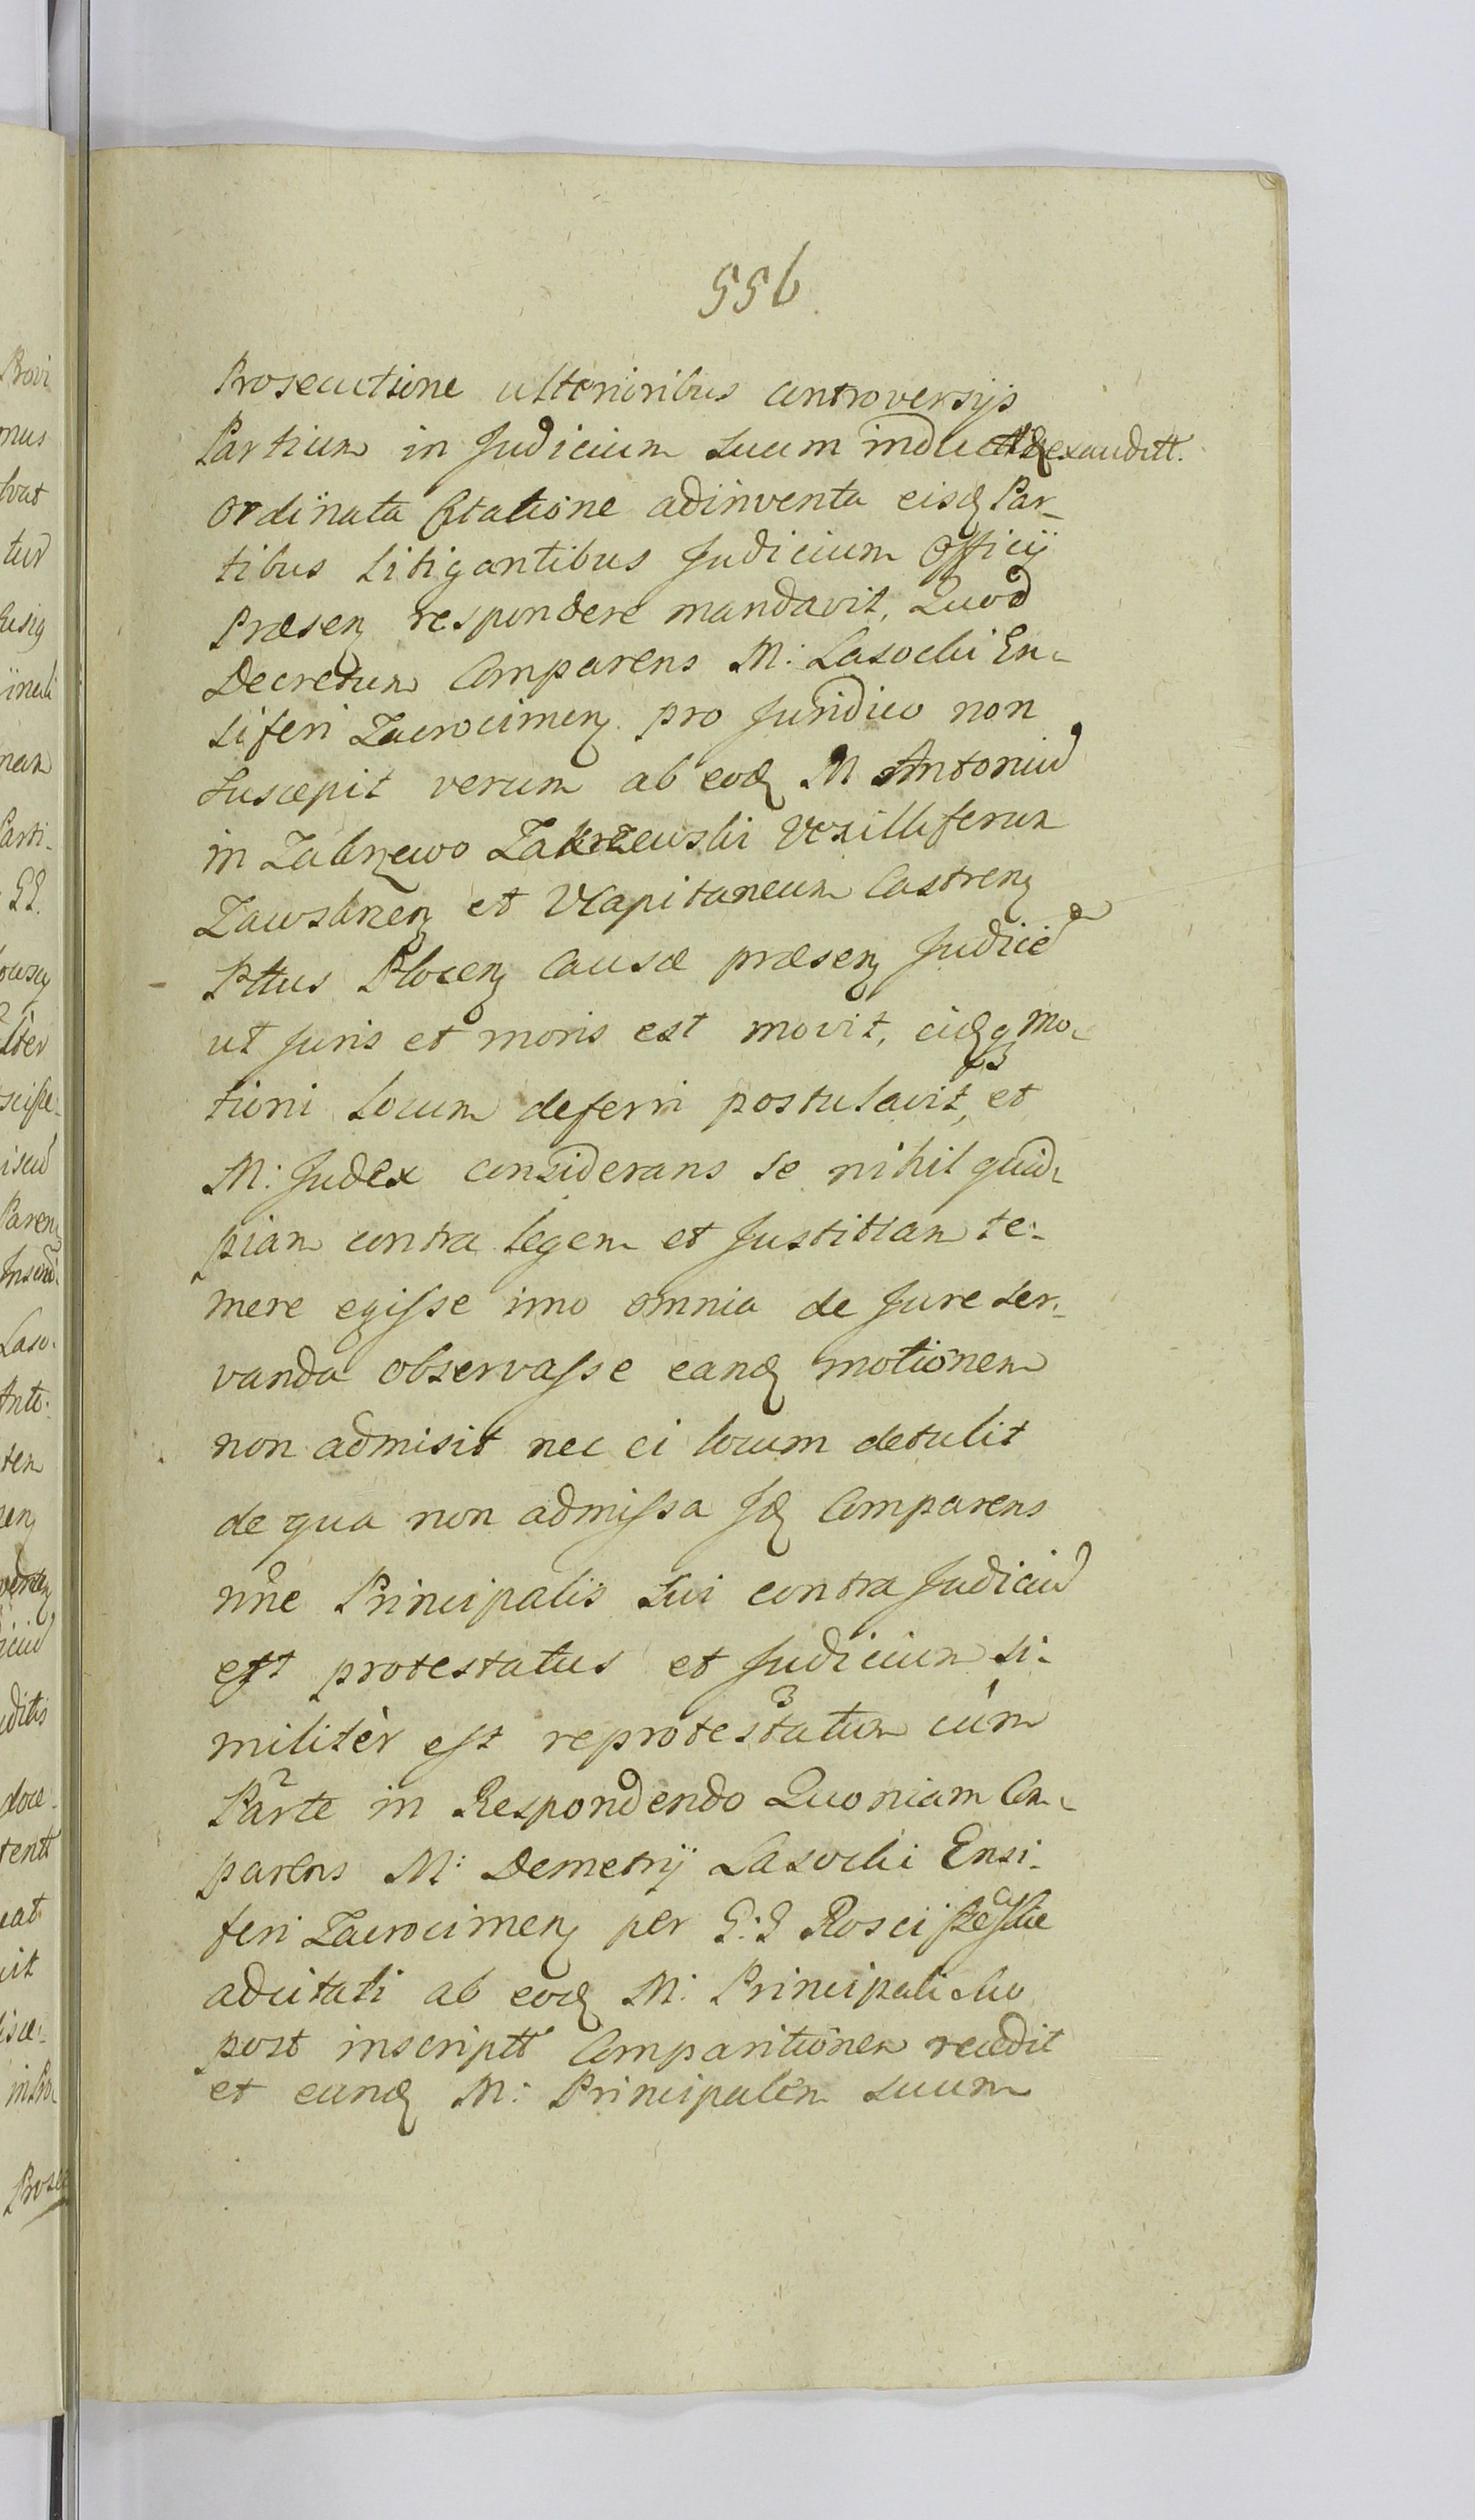 556
Prosecutione ulterioribus controversijs
Partium in Judicium suum induct exauditt.
Ordinata Citatione adinventa eisq Par-
tibus Litigantibus Judicium Officij
Præsenz respondere mandavit, Quod
Decretum Comparens M: Lasocki En-
siferi Zacrocimenz pro Juridico non
suscepit verum ab eodz M Antoniu
in Zakrzewo Zakrzewski Vexilliferum
Zawskrzenz et VCapitaneum Castrenz
Pttus Plocenz Causæ præsenz Judice
ut Juris et moris est movit, eidzq mo-
tioni locum deferri postulavit, et
M: Judex considerans se nihil quid-
piam contra legem et Justitiam te-
mere egisse imo omnia de Jure ser-
vanda observasse eandz motionem
non admisit nec ei locum detulit
de qua non admissa Jdz Comparens
nne Principalis sui contra Judiciu
est protestatus et Judicium si-
militèr est reprotestatum cum
Parte in Respondendo Quoniam Com-
parens M: Demetrij Lasocki Ensi-
feri Zacrocimenz per G:G Rosciszewskie
adcitati ab eodz M: Principali suo
post inscriptt Comparitionem recedit
et eundz M: Principalem suum
Provi
mus
tur
nam
Parti-
GG.
Laso-
doce-
Prosec